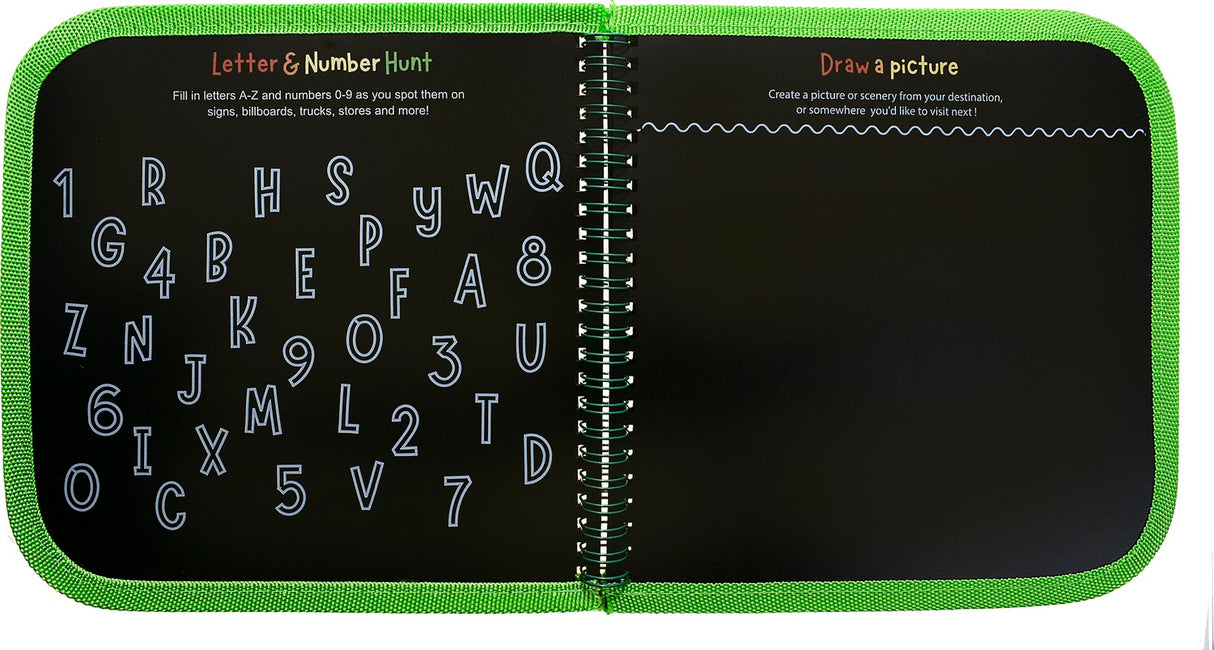 Letter & Number Hunt
Fill in letters A-Z and numbers 0-9 as you spot them on
signs, billboards, trucks, stores and more!
1 R H S y W Q
G 4 B E P F A 8
Z N K 9 O 3 U
J
6 M L 2 T
I X D
0 C 5 V 7
Draw a picture
Create a picture or scenery from your destination,
or somewhere you'd like to visit next !